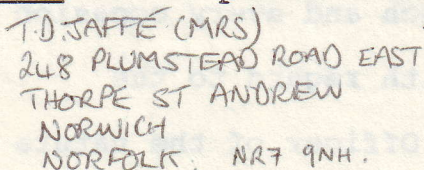 T.D. JAFFÉ (MRS)
248 PLUMSTEAD ROAD EAST
THORPE ST ANDREW
NORWICH
NORFOLK. NR7 9NH.